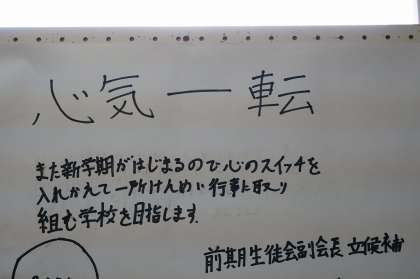 心気一転
また新学期がはじまるので心のスイッチを
入れかえて一所けんめい行事に取り
組む学校を目指します。
前期生徒会副会長 立候補